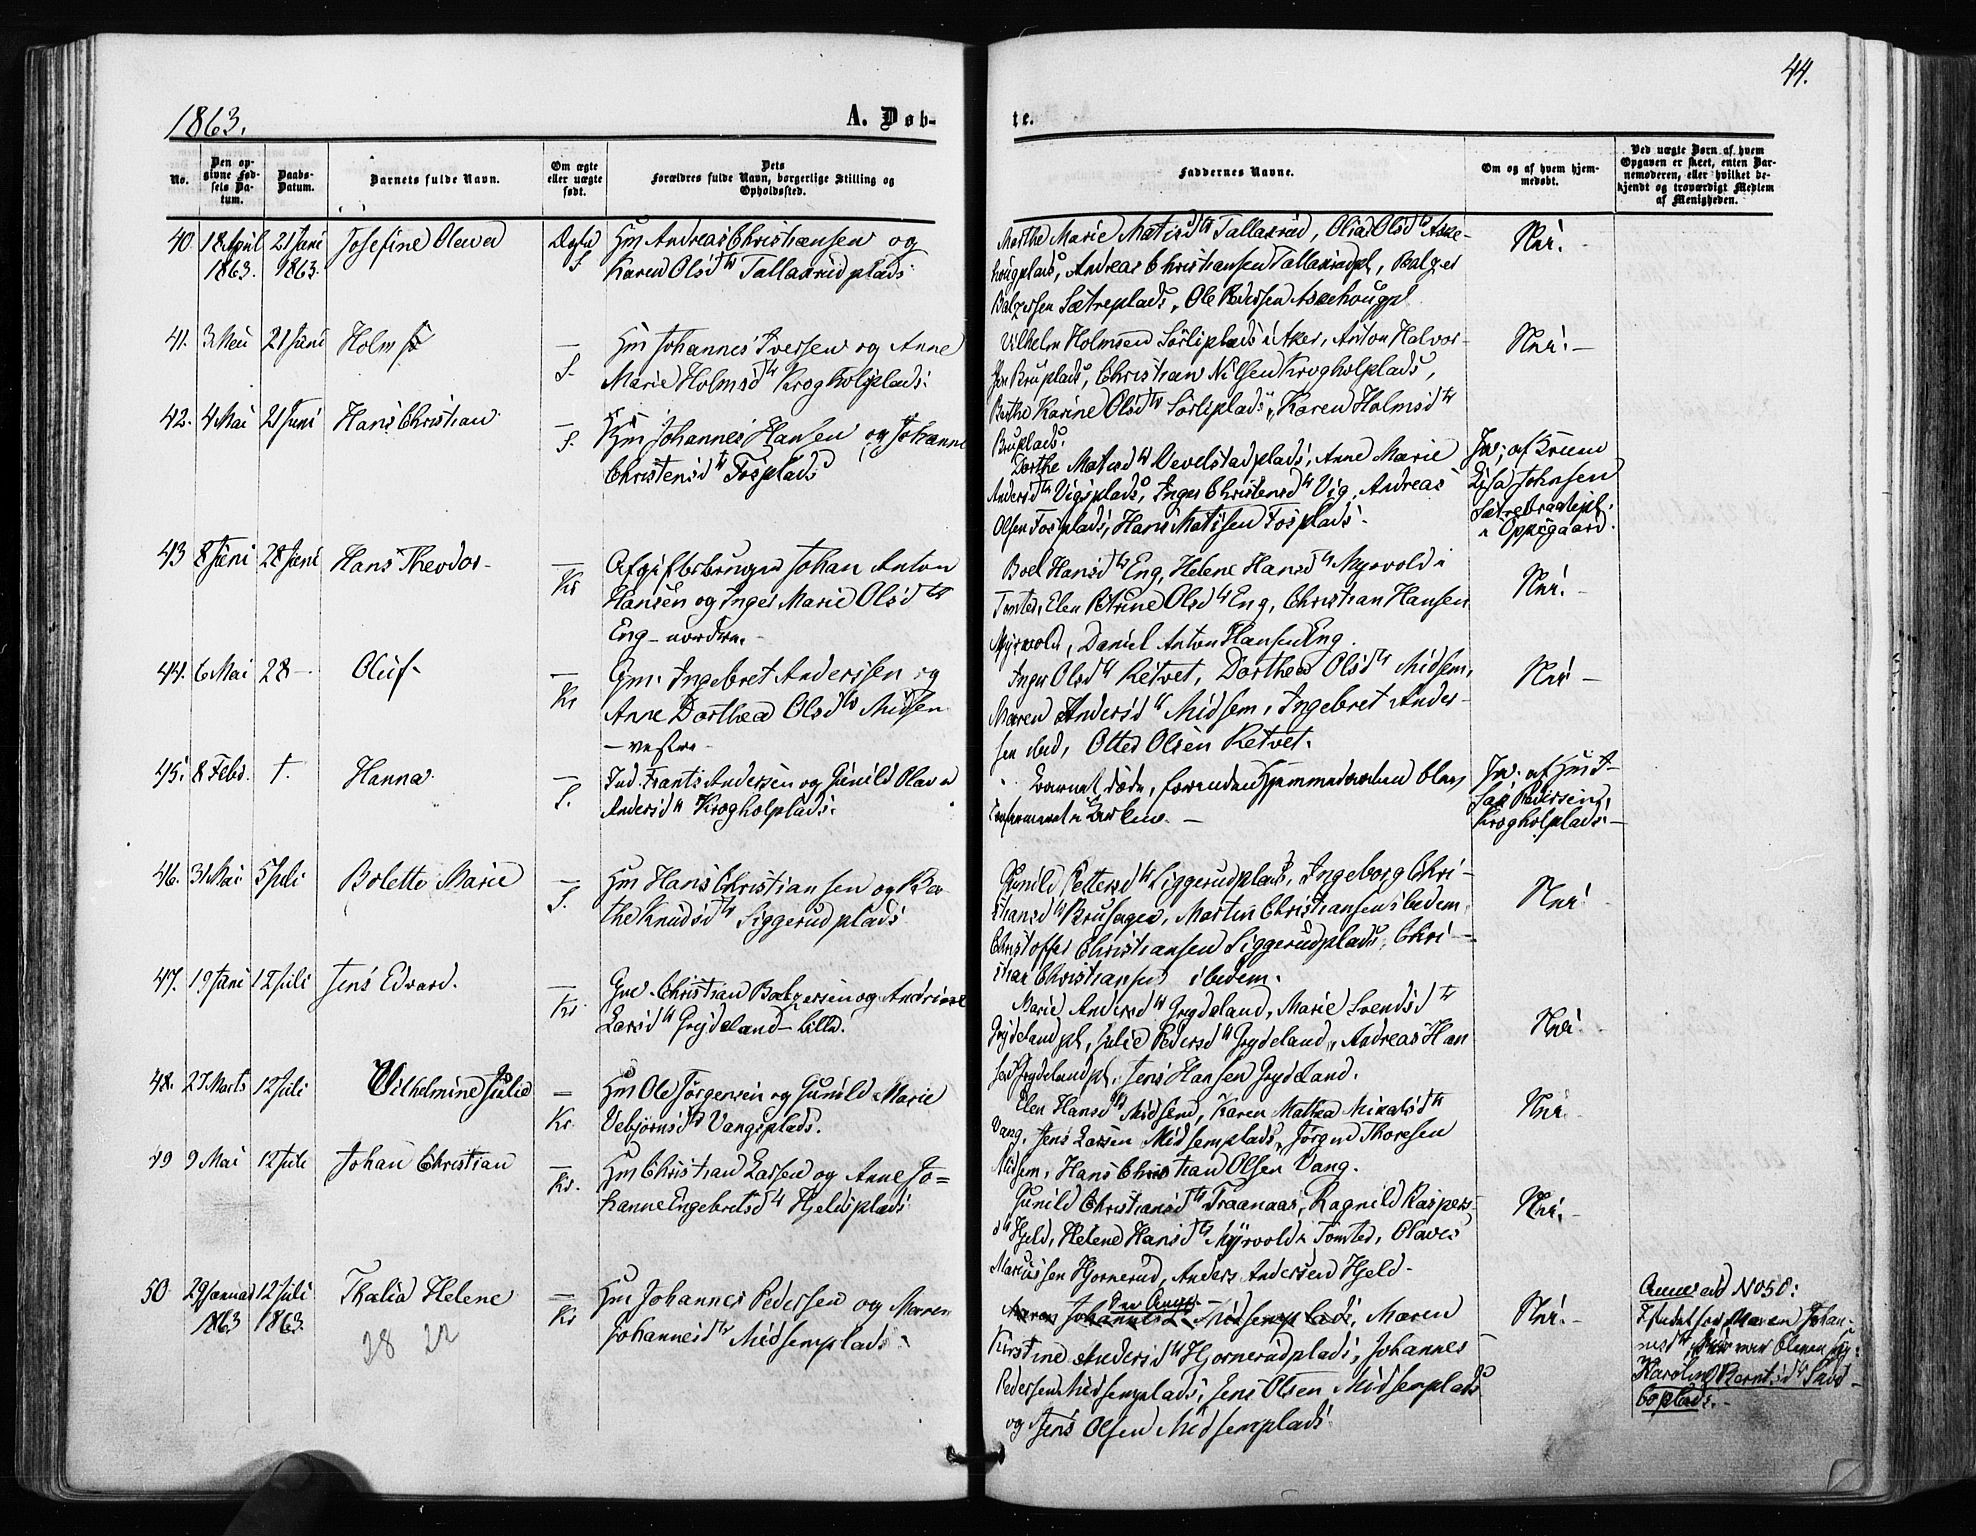 44.
1863.
A. Døb-
te.
No.
Den op-
givne Fød-
sels Da-
tum.
Daabs-
Datum.
Barnets fulde Navn.
Om ægte
eller uægte
født.
Dets
Forældres fulde Navn, borgerlige Stilling og
Opholdssted.
Faddernes Navne.
Om og af hvem hjem-
medøbt.
Ved uægte Børn af hvem
Opgaven er skeet, enten Bar-
nemoderen, eller hvilket be-
kjendt og troværdigt Medlem
af Menigheden.
40. 18 April 21 Juni Josefine Olava Hm Andreas Christiansen og
1863. 1863. S. Karen Olsdtr Tallakrudplads.
Marthe Marie Matisdtr Tallakrud, Olia Olsdtr Aske-
hougplads, Andreas Christiansen Tallakrudpl, Balzer
Balzersen Sætreplads, Ole Pedersen Askehougpl
Nei.
41. 3 Mai 21 Juni Holm — Hm Johannes Iversen og Anne
S. Marie Holmsdtr Krogholplads.
Vilhelm Holmsen Sørliplads i Aker, Anton Halvor-
sen Bruplads, Christian Nilsen Krogholplads,
Berthe Karine Olsdtr Sørliplads, Karen Holmsdtr
Bruplads.
Nei. —
42. 4 Mai 21 Juni Hans Christian — Hm Johannes Hansen og Johanne
S. Christensdtr Fosplads
Dorthe Matisdtr Vevelstadplads, Anne Marie
Andersdtr Vigsplads, Inger Christensdtr Vig, Andreas
Olsen Fosplads, Hans Matisen Fosplads.
Ja; af
Lisa Johnsen
i Oppegaard.
43 8 Juni 28 Juni Hans Theodor — Afgiftsbruger Johan Anton
Kr Hansen og Inger Marie Olsdtr
Eng – nordre. –
Boel Hansdtr Eng, Helene Hansdtr Myrvold i
Tomter, Elen Petrine Olsdtr Eng, Christian Hansen
Myrvold, Daniel Anton Hansen Eng.
Nei. —
44. 6 Mai 28 — Oluf — Gm. Ingebret Anderssen og
Kr Anne Dorthea Olsdtr Midsem
– vestre –
Inger Olsdtr Retvet, Dorthea Olsdtr Midsem,
Maren Andersdtr Midsem, Ingebret Ander-
sen ibid, Otter Olsen Retvet.
Nei —
45. 8 Febr. †. Hanna — Ind. Frants Andersen og Gunild Olava
S. Andersdtr Krogholplads.
Barnet døde, forinden Hjemmedaaben blev
confirmeret i Kirken. —
Ja; af Gust-
Pedersen
Krogholplads. —
46. 31 Mai 5 Juli Bolette Marie — Hm Hans Christiansen og Ber-
S. the Knudsdtr Siggerudplads
Gunild Pettersdtr Siggerudplads, Ingeborg Chri-
stiansdtr Bruhagen, Martin Christiansen ibidem,
Christoffer Christiansen Siggerudplads, Chri-
stian Christiansen ibidem.
Nei
47. 19 Juni 12 Juli Jens Edvard. — Christian Balzersen og Andrine
Kr. Larsdtr Grydeland – lille.
Marie Andersdtr Grydeland, Marie Svendsdtr
Grydelandpl, Julie Pedersdtr Grydeland, Andreas Han
sen Grydelandpl, Jens Hansen Grydeland.
Nei.
48. 27 Marts 12 Juli Vilhelmine Julie — Hm Ole Jørgensen og Gunild Marie
Kr. Vebjørnsdtr Vangsplads.
Elen Hansdtr Midsem, Karen Mathea Mikalsdtr
Vang, Jens Larsen Midsemplads, Jørgen Thoresen
Midsem, Hans Christian Olsen Vang.
Nei.
49 9 Mai 12 Juli Johan Christian — Hm Christian Larsen og Anne Jo=
Kr. hanne Engebretsdtr Hjelds plads
Gunild Christiansdtr Traanaas, Ragnild Kaspers-
dtr Hjeld, Helene Hansdtr Myrvold i Tomter, Olaves
Mariussen Hjornerud, Anders Andersen Hjeld.
Nei. —
50 29 Januar 12 Juli Thalia Helene — Hm Johannes Pedersen og Maren
1863 1863. Kr Johannesdtr Midsemplads.
28 22
Maren Johannesdtr Midsemplads, Maren
Kirstine Andersdtr Hjornerudplads, Johannes
Pedersen Midsemplads, Jens Olsen Midsemplads
og Jens Olsen Midsemplads.
Nei. —
Anm ad No 50:
Istedet for Maren Johan-
nesdtr
Karoline Berntsdtr
boplads.